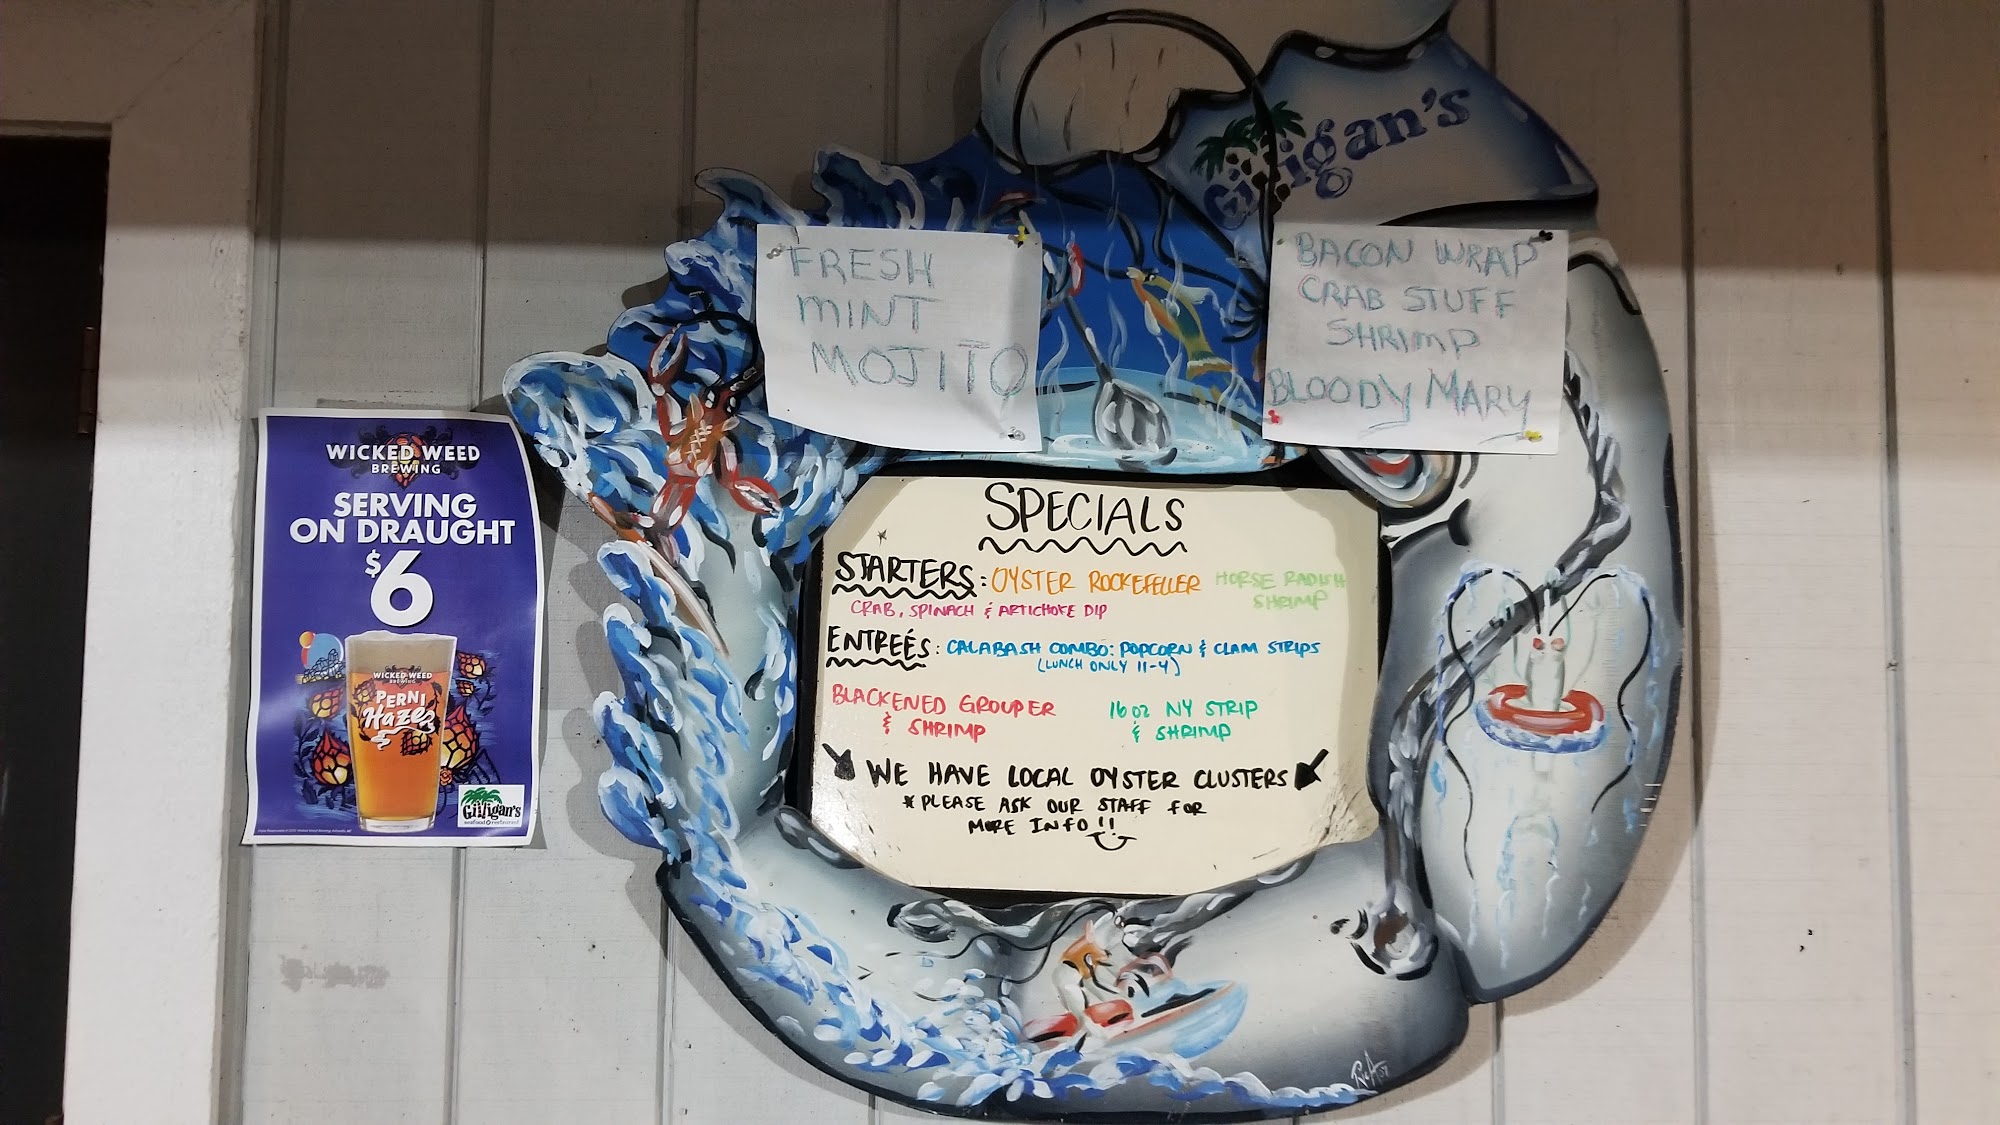 Gilligan's
FRESH
MINT
MOJITO
BACON WRAP
CRAB STUFF
SHRIMP
BLOODY MARY
WICKED WEED
BREWING
SERVING
ON DRAUGHT
$6
WICKED WEED
BREWING
PERNI
Haze
Gilligan's
SPECIALS
STARTERS: OYSTER ROCKEFELLER HORSE RADISH
SHRIMP
CRAB, SPINACH & ARTICHOKE DIP
ENTREÉS: CALABASH COMBO: POPCORN & CLAM STRIPS
(LUNCH ONLY 11-4)
BLACKENED GROUPER
& SHRIMP
16 oz NY STRIP
& SHRIMP
WE HAVE LOCAL OYSTER CLUSTERS
* PLEASE ASK OUR STAFF FOR
MORE INFO!!